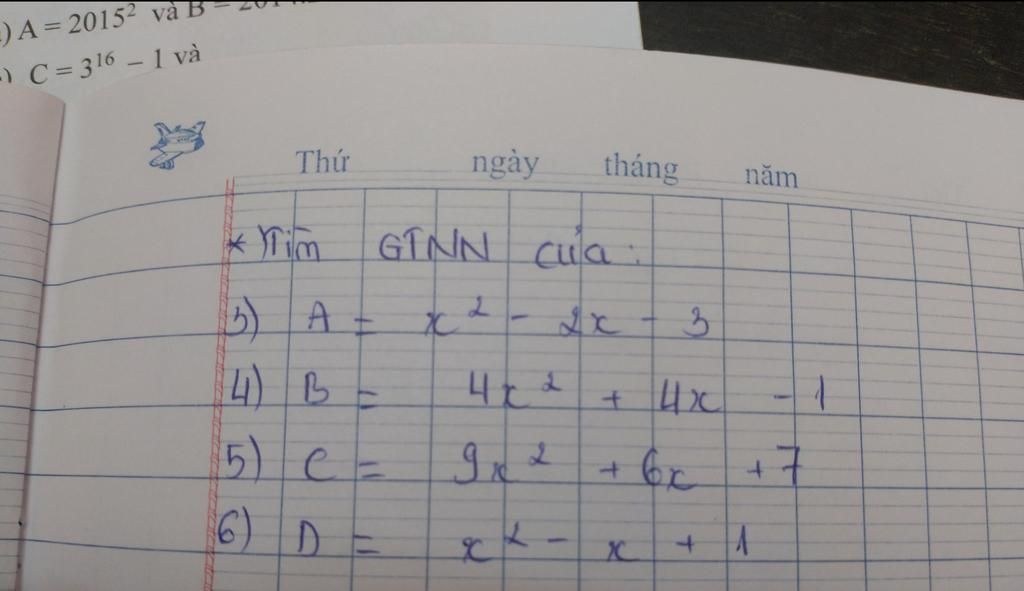 ) A = 2015² và B =
C = 3¹⁶ – 1 và
Thứ ngày tháng năm
* Tìm GTNN của:
3) A = x² - 2x - 3
4) B = 4x² + 4x - 1
5) C = 9x² + 6x + 7
6) D = x² - x + 1